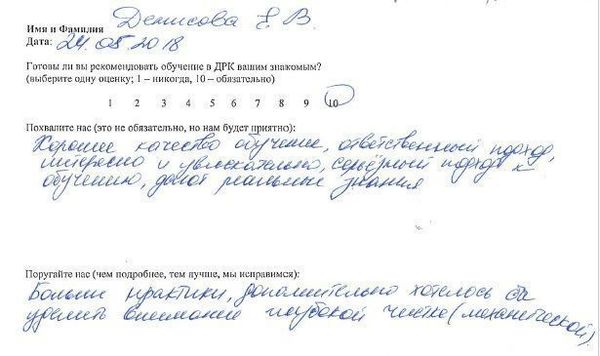 Имя и Фамилия Денисова Е. В.
Дата: 24.05.2018
Готовы ли вы рекомендовать обучение в ДРК вашим знакомым?
(выберите одну оценку; 1 – никогда, 10 – обязательно)
1 2 3 4 5 6 7 8 9 10
Похвалите нас (это не обязательно, но нам будет приятно):
Хорошее качество обучения, ответственный подход,
интересно и увлекательно, серьёзный подход к
обучению, дают реальные знания
Поругайте нас (чем подробнее, тем лучше, мы исправимся):
Больше практики, дополнительно хотелось бы
уделить внимание глубокой чистке (механической)